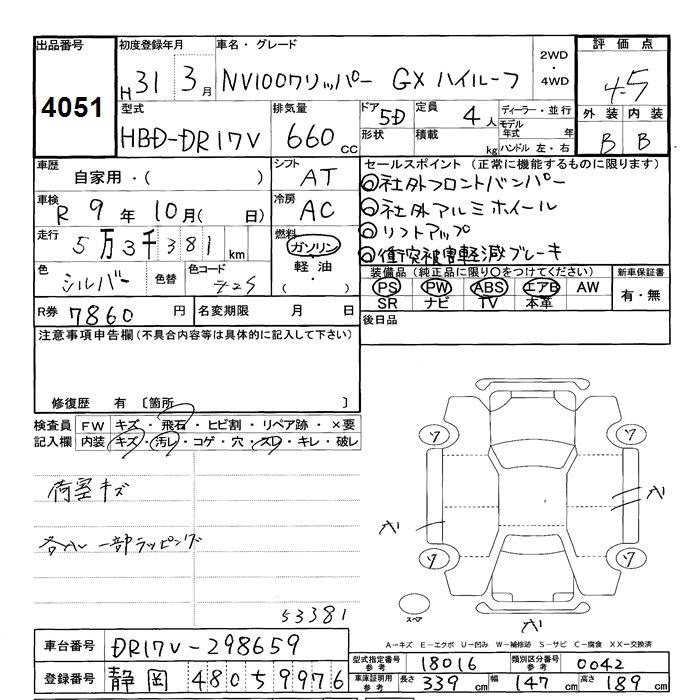 出品番号 初度登録年月 車名・グレード 2WD 評価点
4051 H 31 3月 NV100クリッパー GX ハイルーフ ・ 4WD 4.5
型式 排気量 ドア 5D 定員 4人 ディーラー・並行 外装 内装
HBD-DR17V 660cc 形状 積載 kg モデル年式 年 B B
ハンドル 左・右
車歴 シフト セールスポイント(正常に機能するものに限ります)
自家用・( ) AT ◎社外フロントバンパー
車検 冷房 ◎社外アルミホイール
R 9年10月( 日) AC ◎リフトアップ
走行 燃料 ◎衝突被害軽減ブレーキ
5万3千381km ガソリン
色 シルバー 色替 色コード 軽油 装備品(純正品に限り○をつけてください) 新車保証書
・( ) PS PW ABS エアB AW 有・無
SR ナビ TV 本革
R券 7860円 名変期限 月 日 後日品
注意事項申告欄(不具合内容等は具体的に記入して下さい)
修復歴 有 〔箇所 〕
検査員 FW キズ・飛石・ヒビ割・リペア跡・×要
記入欄 内装 キズ・汚レ・コゲ・穴・スレ・キレ・破レ
ワ ワ
荷室キズ
ワ ワ
一部ラッピング
スペア
53381
A-キズ E-エクボ U-凹み W-補修跡 S-サビ C-腐食 XX-交換済
車台番号 DR17V-298659
型式指定番号参考 18016 類別区分番号参考 0042
登録番号 静岡 480 59976
車庫証明用参考 長さ 339cm 幅 147cm 高さ 189cm